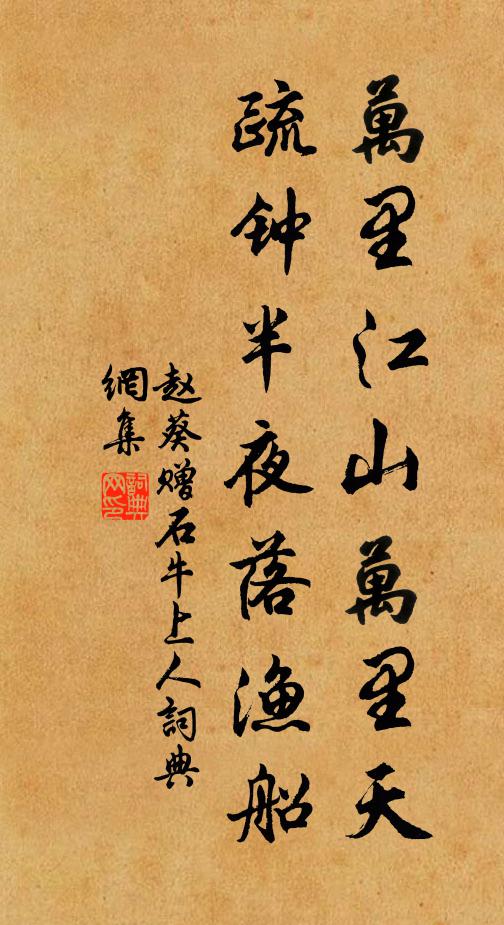 萬里江山萬里天
疏钟半夜落漁船
赵葵赠石牛上人詞典
網集
詞典
网印